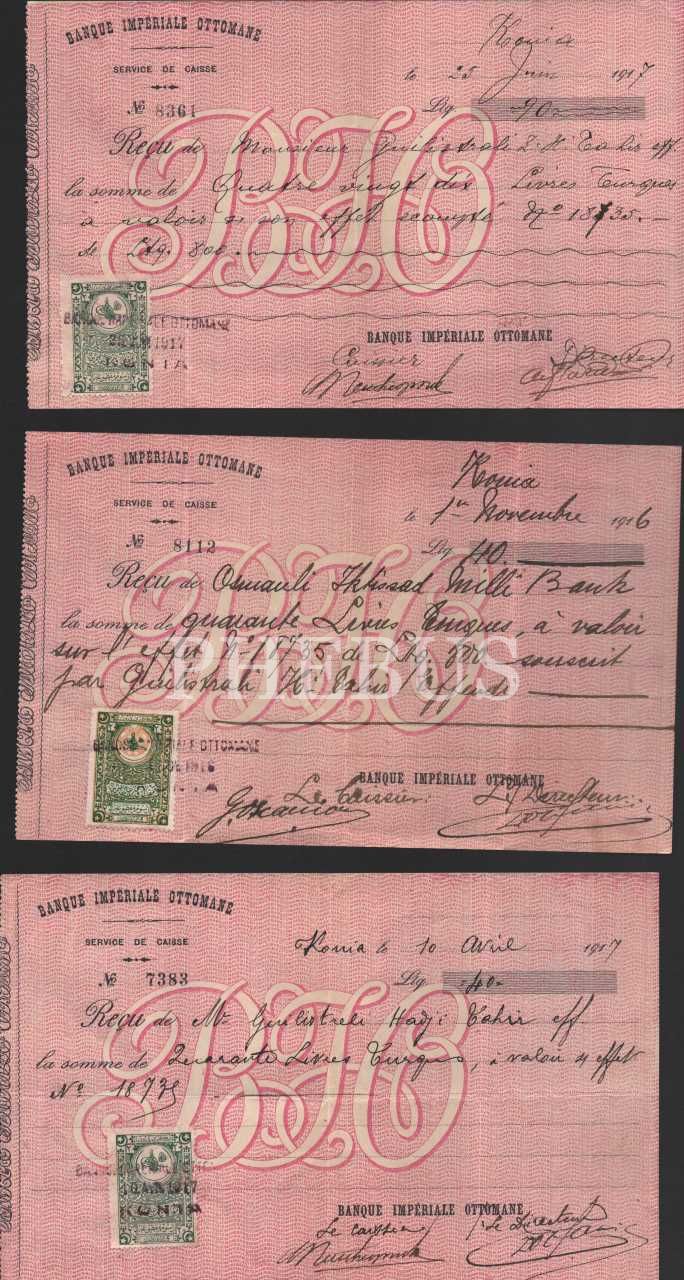 BANQUE IMPÉRIALE OTTOMANE
SERVICE DE CAISSE
Konia
le 25 Juin 1917
№ 8361
Ltq. 90
Reçu de Monsieur Guilistrali Z. H. Tahir eff.
la somme de Quatre vingt dix Livres Turques
à valoir s/ son effet escompté No 18735.
de Ltq. 800.
BHO
BANQUE IMPERIALE OTTOMANE
1917
KONIA
BANQUE IMPÉRIALE OTTOMANE
Caissier
BANQUE IMPÉRIALE OTTOMANE
SERVICE DE CAISSE
Konia
le 1er Novembre 1916
№ 8112
Ltq. 40.
Reçu de Osmanli Iktissad Milli Bank
la somme de quarante Livres Turques, à valoir
sur l'effet No 18735 de Ltq. 800 souscrit
par Guilistrali Hi Tahir Effendi
PHEBUS
BHO
OTTOMANE
1916
BANQUE IMPÉRIALE OTTOMANE
Le Caissier
Le Directeur
BANQUE IMPÉRIALE OTTOMANE
SERVICE DE CAISSE
Konia le 10 Avril 1917
№ 7383
Ltq. 40
Reçu de Mr Guilistrali Hadji Tahir eff.
la somme de Quarante Livres Turques, à valoir s/ effet
No 18735
BHO
1917
KONIA
BANQUE IMPÉRIALE OTTOMANE
Le caissier
Le Directeur